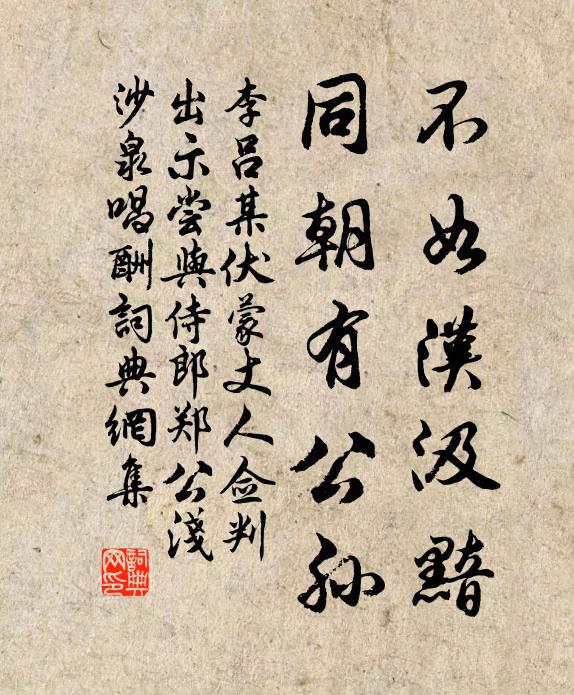 不如漢汲黯
同朝有公孫
李吕某伏蒙丈人佥判
出示尝與侍郎郑公淺
沙泉唱酬詞典網集
詞典网印